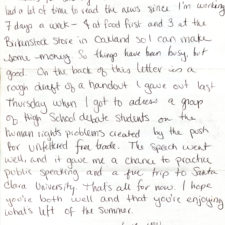 had a lot of time to read the news since I'm working
7 days a week - 4 at food first and 3 at the
Birkenstock Store in Oakland so I can make
some money. So things have been busy, but
good. On the back of this letter is a
rough draft of a handout I gave out last
Thursday when I got to adress a group
of High School debate students on the
human rights problems created by the push
for unfettered free trade. The speech went
well, and it gave me a chance to practice
public speaking and a free trip to Santa
Clara University. That's all for now. I hope
you're both well and that you're enjoying
what's left of the summer.